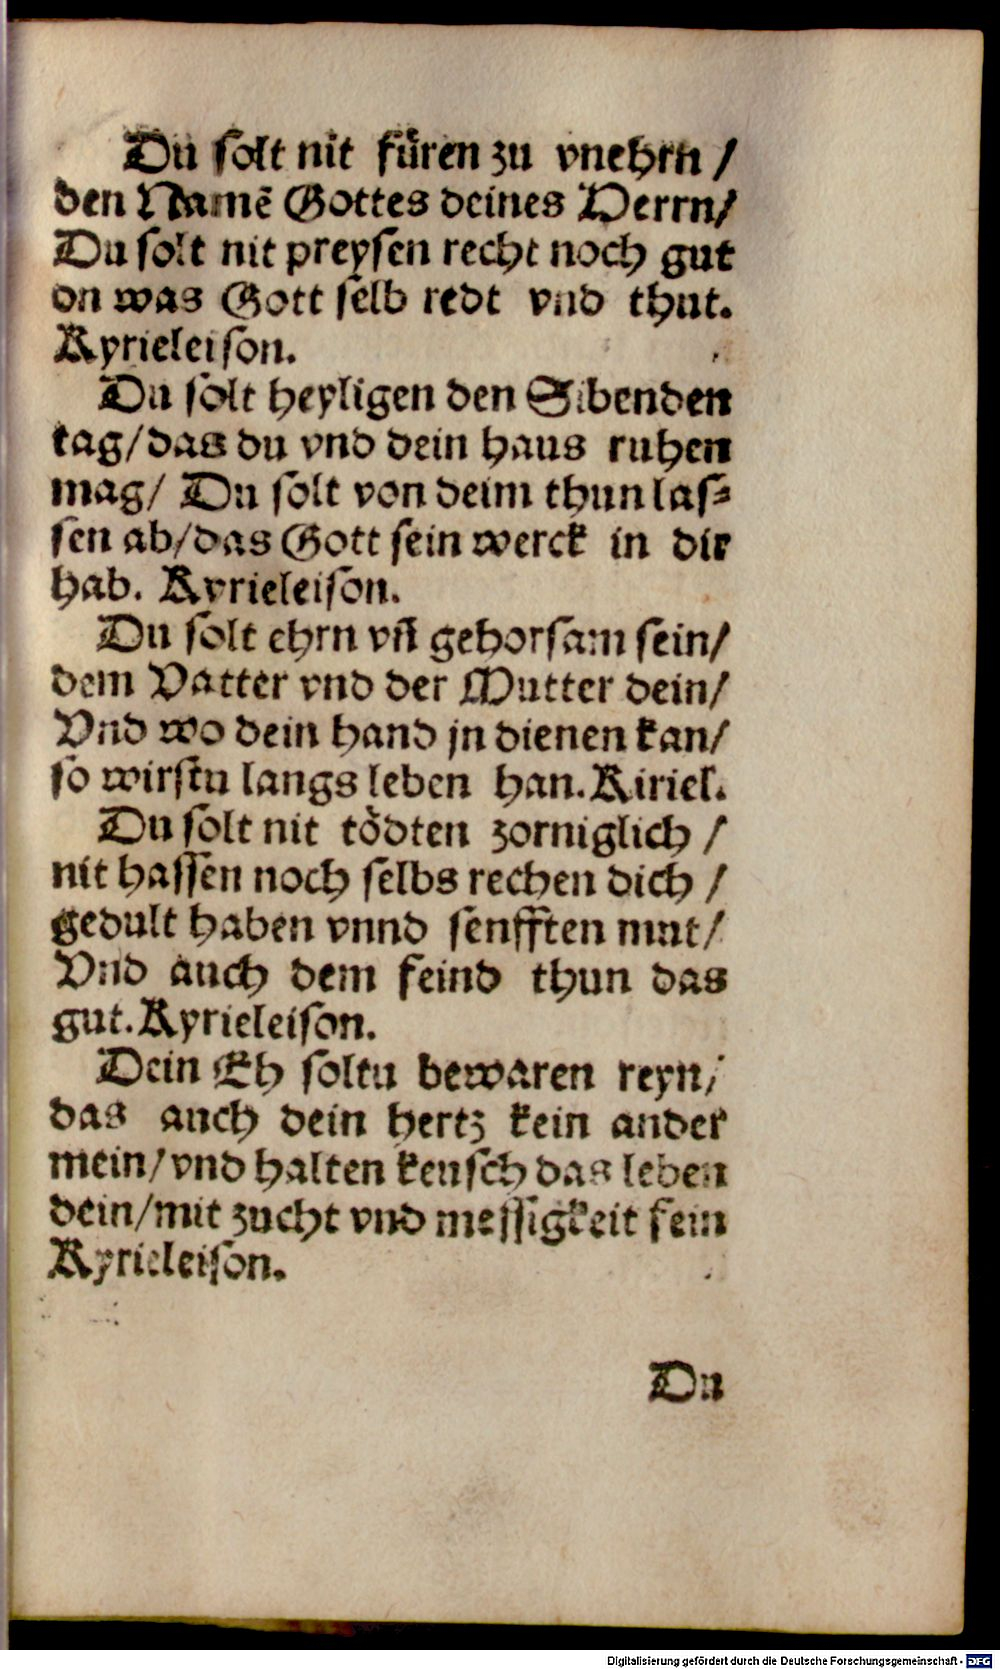 Du solt nit füren zu vnehrn /
den Namē Gottes deines Herrn/
Du solt nit preysen recht noch gut
on was Gott selb redt vnd thut.
Kyrieleison.
Du solt heyligen den Sibenden
tag/das du vnd dein haus ruhen
mag/ Du solt von deim thun las⸗
sen ab/das Gott sein werck in dir
hab. Kyrieleison.
Du solt ehrn vñ gehorsam sein/
dem Vatter vnd der Mutter dein/
Vnd wo dein hand jn dienen kan/
so wirstu langs leben han. Kiriel.
Du solt nit tödten zorniglich /
nit hassen noch selbs rechen dich /
gedult haben vnnd senfften mut/
Vnd auch dem feind thun das
gut. Kyrieleison.
Dein Eh soltu bewaren reyn/
das auch dein hertz kein ander
mein/vnd halten keusch das leben
dein/mit zucht vnd messigkeit fein
Kyrieleison.
Du
Digitalisierung gefördert durch die Deutsche Forschungsgemeinschaft - DFG